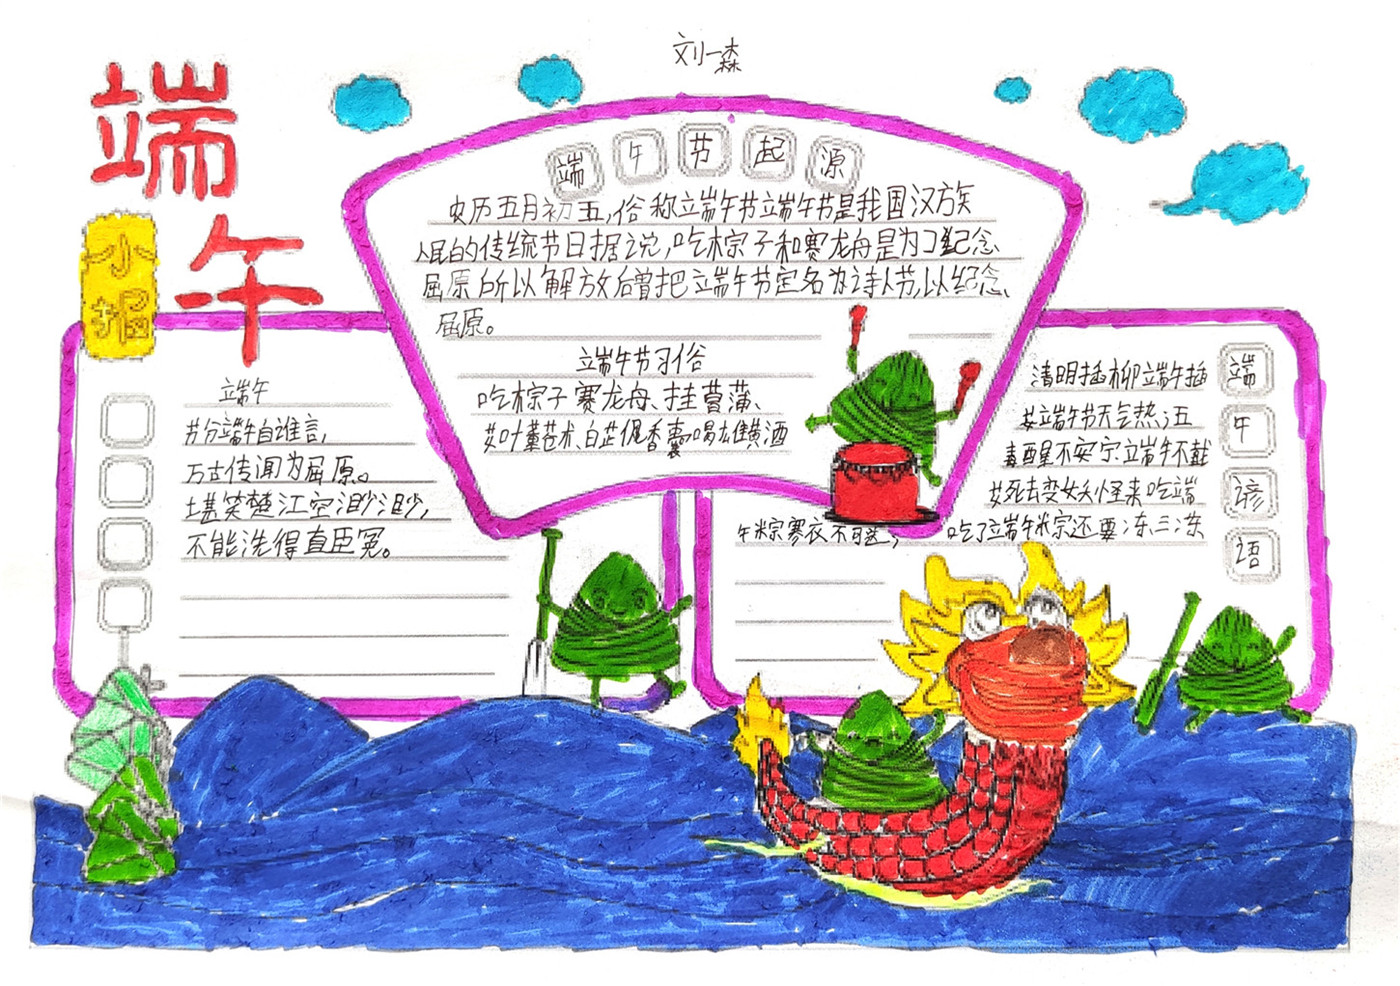 刘一森
端午
小报
端午节起源
农历五月初五,俗称端午节端午节是我国汉族
人民的传统节日据说,吃粽子和赛龙舟是为了纪念
屈原所以解放后曾把端午节定名为诗人节,以纪念
屈原。
端午节习俗
吃粽子赛龙舟、挂菖蒲、
艾叶薰苍术、白芷佩香囊喝雄黄酒
端午
节分端午自谁言,
万古传闻为屈原。
堪笑楚江空渺渺,
不能洗得直臣冤。
端午谚语
清明插柳端午插
艾端午节天气热;五
毒醒星不安宁端午不戴
艾死去变妖怪未吃端
午粽寒衣不可送; 吃了端午粽还要冻三冻